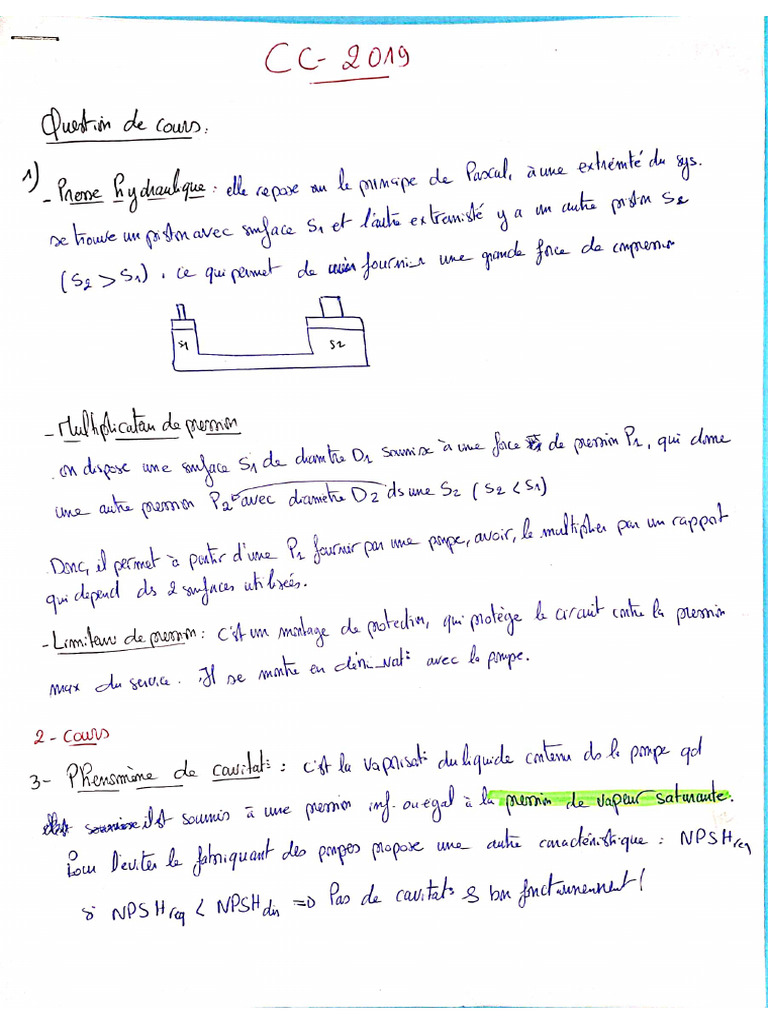 CC-2019
Question de cours:
1) - Presse hydraulique : elle repose sur le principe de Pascal, à une extrémité du sys.
se trouve un piston avec surface S1 et l'autre extremisté y a un autre piston S2
(S2 > S1), ce qui permet de fournir une grande force de compression
S1 S2
- Multiplication de pression
on dispose une surface S1 de diamtre D1 soumise à une force de pression P1, qui donne
une autre pression P2 avec diametre D2 ds une S2 (S2 < S1)
Donc, il permet à partir d'une P1 fournir par une pompe, avoir, le multiplier par un rapport
qui depend ds 2 surfaces utilisées.
- Limiteur de pression : c'est un montage de protection, qui protège le circuit contre la pression
max du service. Il se montre en avec la pompe.
2 - Cours
3- Phenomène de cavitat° : c'est la vaporisat° du liquide contenu ds la pompe qd
il est soumis à une pression inf. ou égal à la pression de vapeur saturante.
Pour l'éviter le fabriquant des pompes propose une autre caractéristique : NPSHreq
si NPSHreq < NPSHdis => Pas de cavitat° & bon fonctionnement !